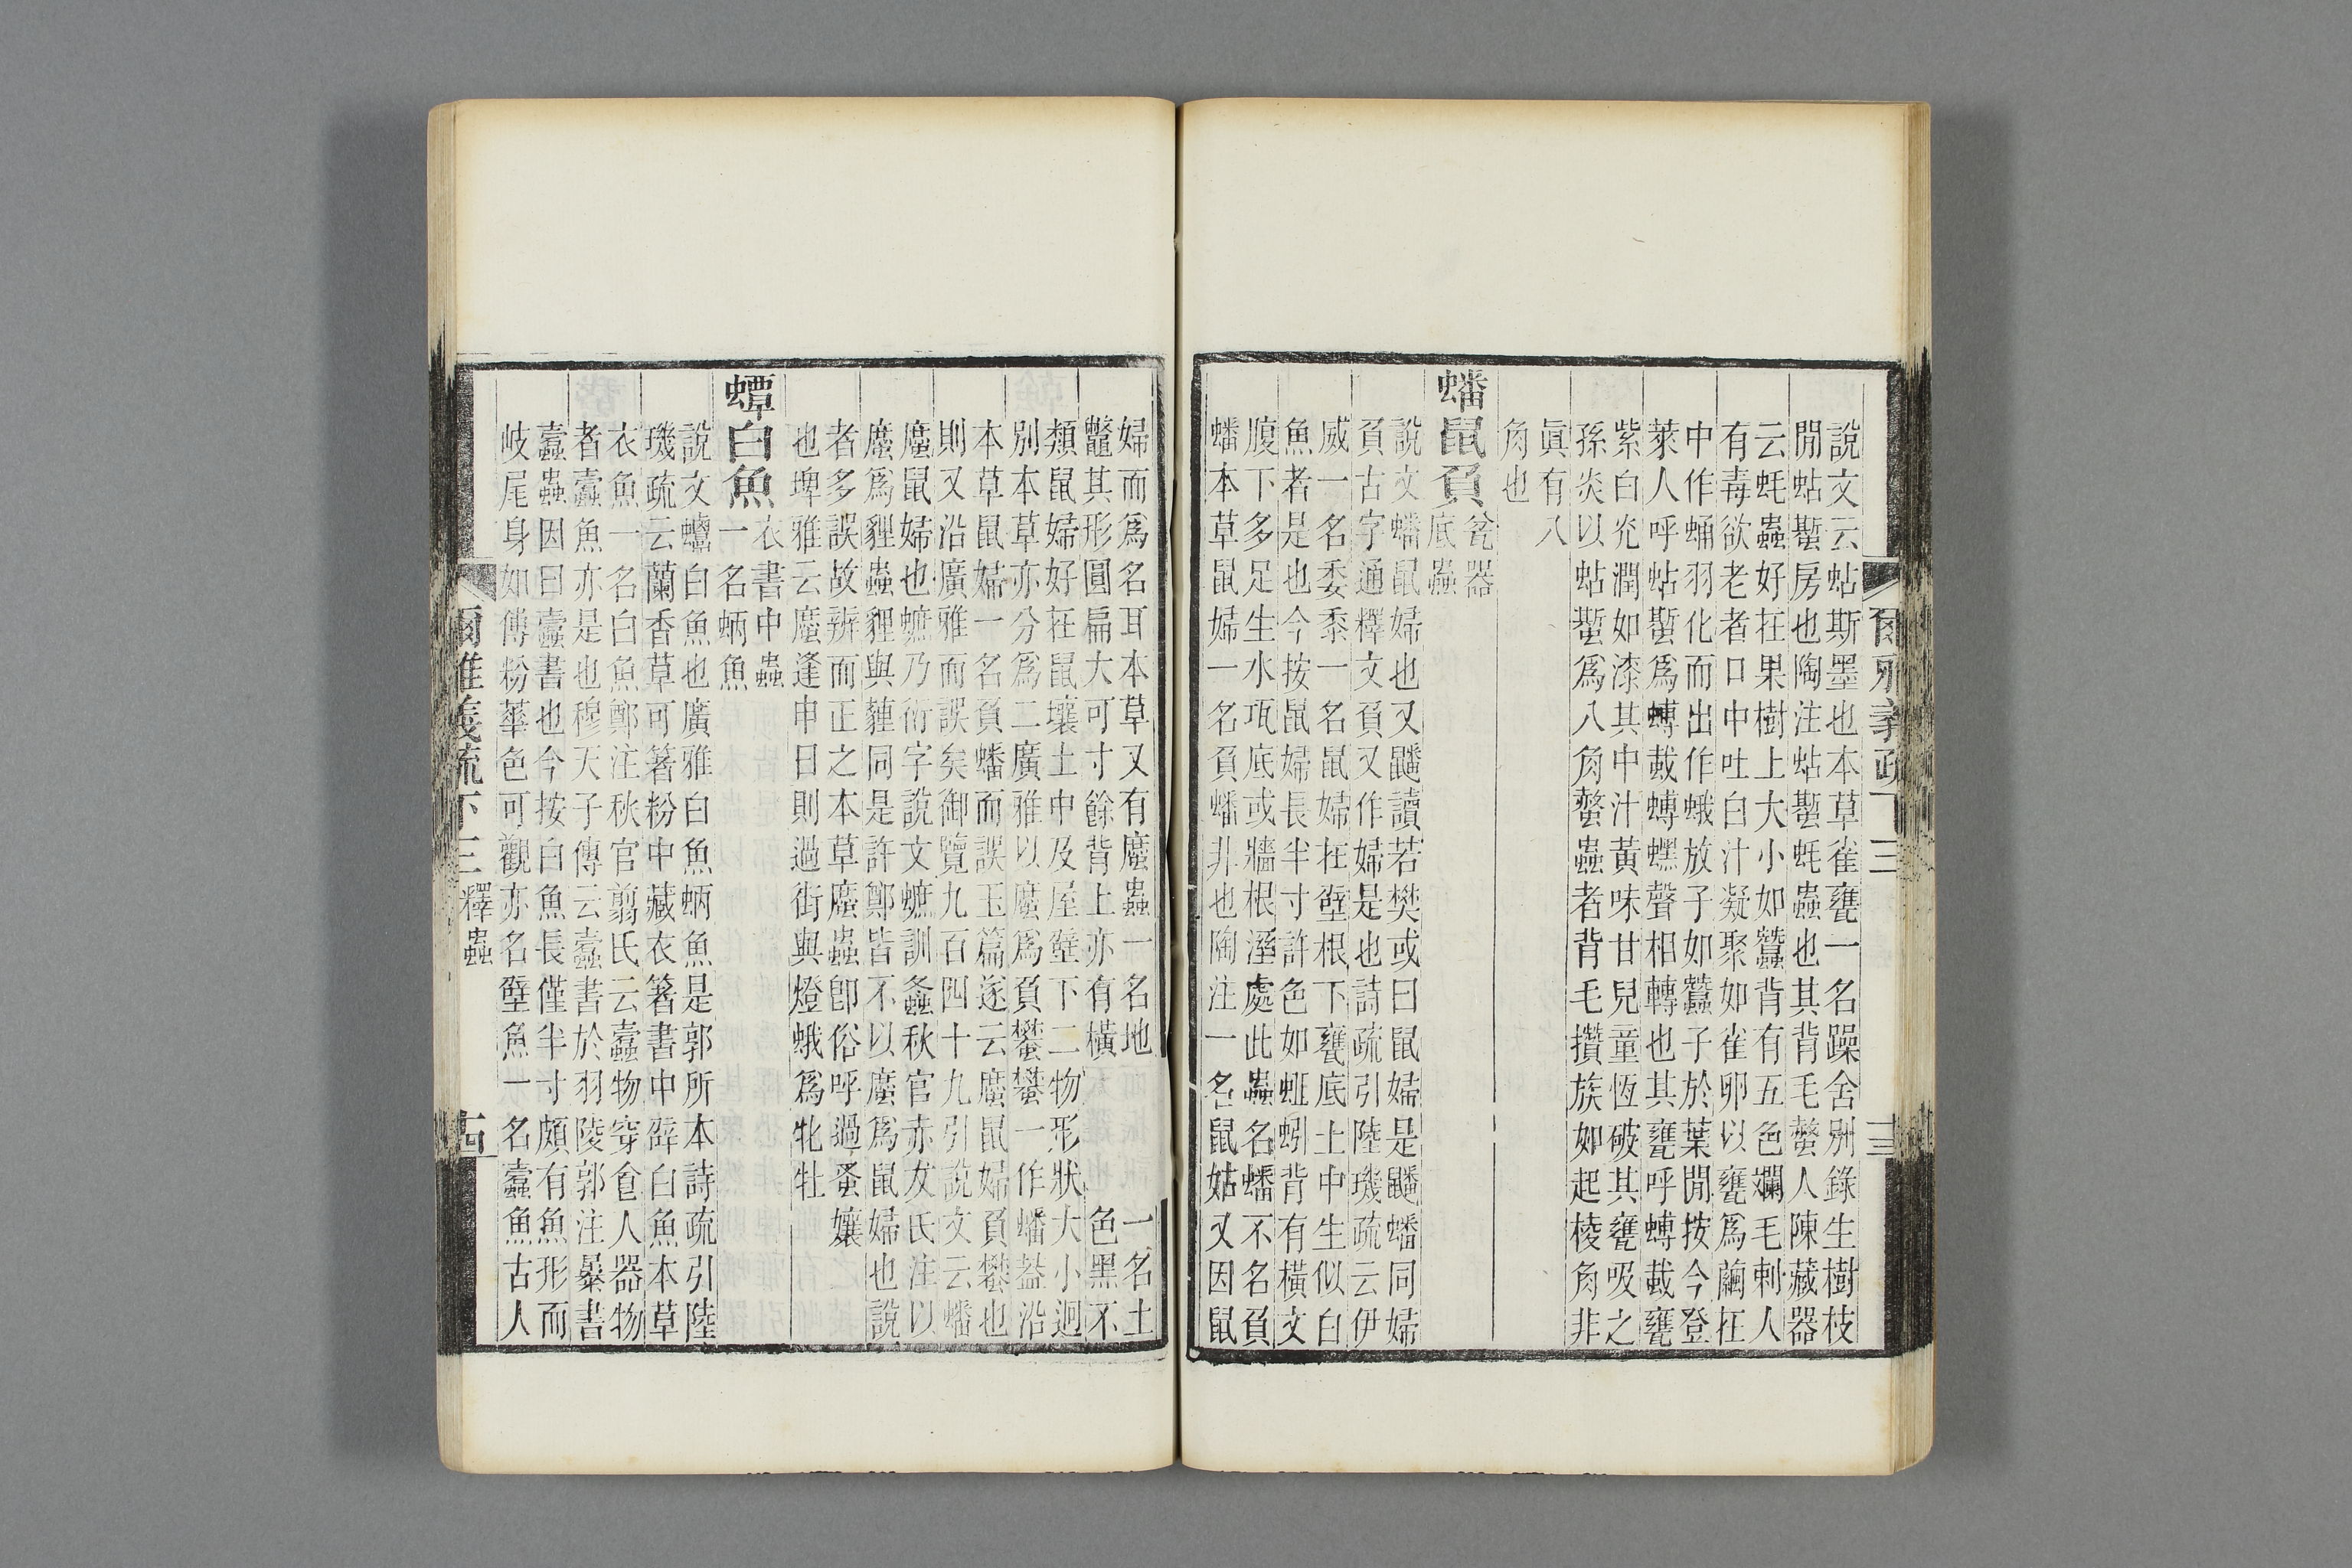 爾雅義疏 下三 十三
說文云蛅斯墨也本草雀甕一名躁舍別錄生樹枝
閒蛅蟴房也陶注蛅蟴蚝蟲也其背毛螫人陳藏器
云蚝蟲好在果樹上大小如蠶背有五色斕毛刺人
有毒欲老者口中吐白汁凝聚如雀卵以甕爲繭在
中作蛹羽化而出作蛾放子如蠶子於葉閒按今登
萊人呼蛅蟴爲載蟔聲相轉也其甕呼載甕
紫白光潤如漆其中汁黃味甘兒童恆破其甕吸之
孫炎以蛅蟴爲八角螫蟲者背毛攢族如起棱角非
眞有八
角也
蟠鼠負
瓮器
底蟲
說文蟠鼠婦也又䶈讀若樊或曰鼠婦是䶈蟠同婦
負古字通釋文負又作婦是也詩疏引陸璣疏云伊
威一名委黍一名鼠婦在壁根下甕底土中生似白
魚者是也今按鼠婦長半寸許色如蚯蚓背有橫文
腹下多足生水瓨底或牆根溼處此蟲名蟠不名負
蟠本草鼠婦一名負蟠非也陶注一名鼠姑又因鼠
婦而爲名耳本草又有䗪蟲一名地 一名土
鼈其形圓扁大可寸餘背上亦有橫 色黑不
類鼠婦好在鼠壤土中及屋壁下二物形狀大小迥
別本草亦分爲二廣雅以䗪爲負蠜蠜一作蟠葢沿
本草鼠婦一名負蟠而誤玉篇遂云䗪鼠婦負蠜也
則又沿廣雅而誤矣御覽九百四十九引說文云蟠
䗪鼠婦也蟅乃衍字說文蟅訓螽秋官赤犮氏注以
䗪爲貍蟲貍與薶同是許鄭皆不以䗪爲鼠婦也說
者多誤故辨而正之本草䗪蟲卽俗呼過蚤孃
也埤雅云䗪逢申日則過街與燈蛾爲牝牡
蟫白魚
衣書中蟲
一名蛃魚
說文蟫白魚也廣雅白魚蛃魚是郭所本詩疏引陸
璣疏云蘭香草可著粉中藏衣著書中辟白魚本草
衣魚一名白魚鄭注秋官翦氏云蠹物穿食人器物
者蠹魚亦是也穆天子傳云蠹書於羽陵郭注暴書
蠹蟲因曰蠹書也今按白魚長僅半寸頗有魚形而
岐尾身如傅粉華色可觀亦名壁魚一名蠹魚古人
爾雅義疏 下三 釋蟲 十四